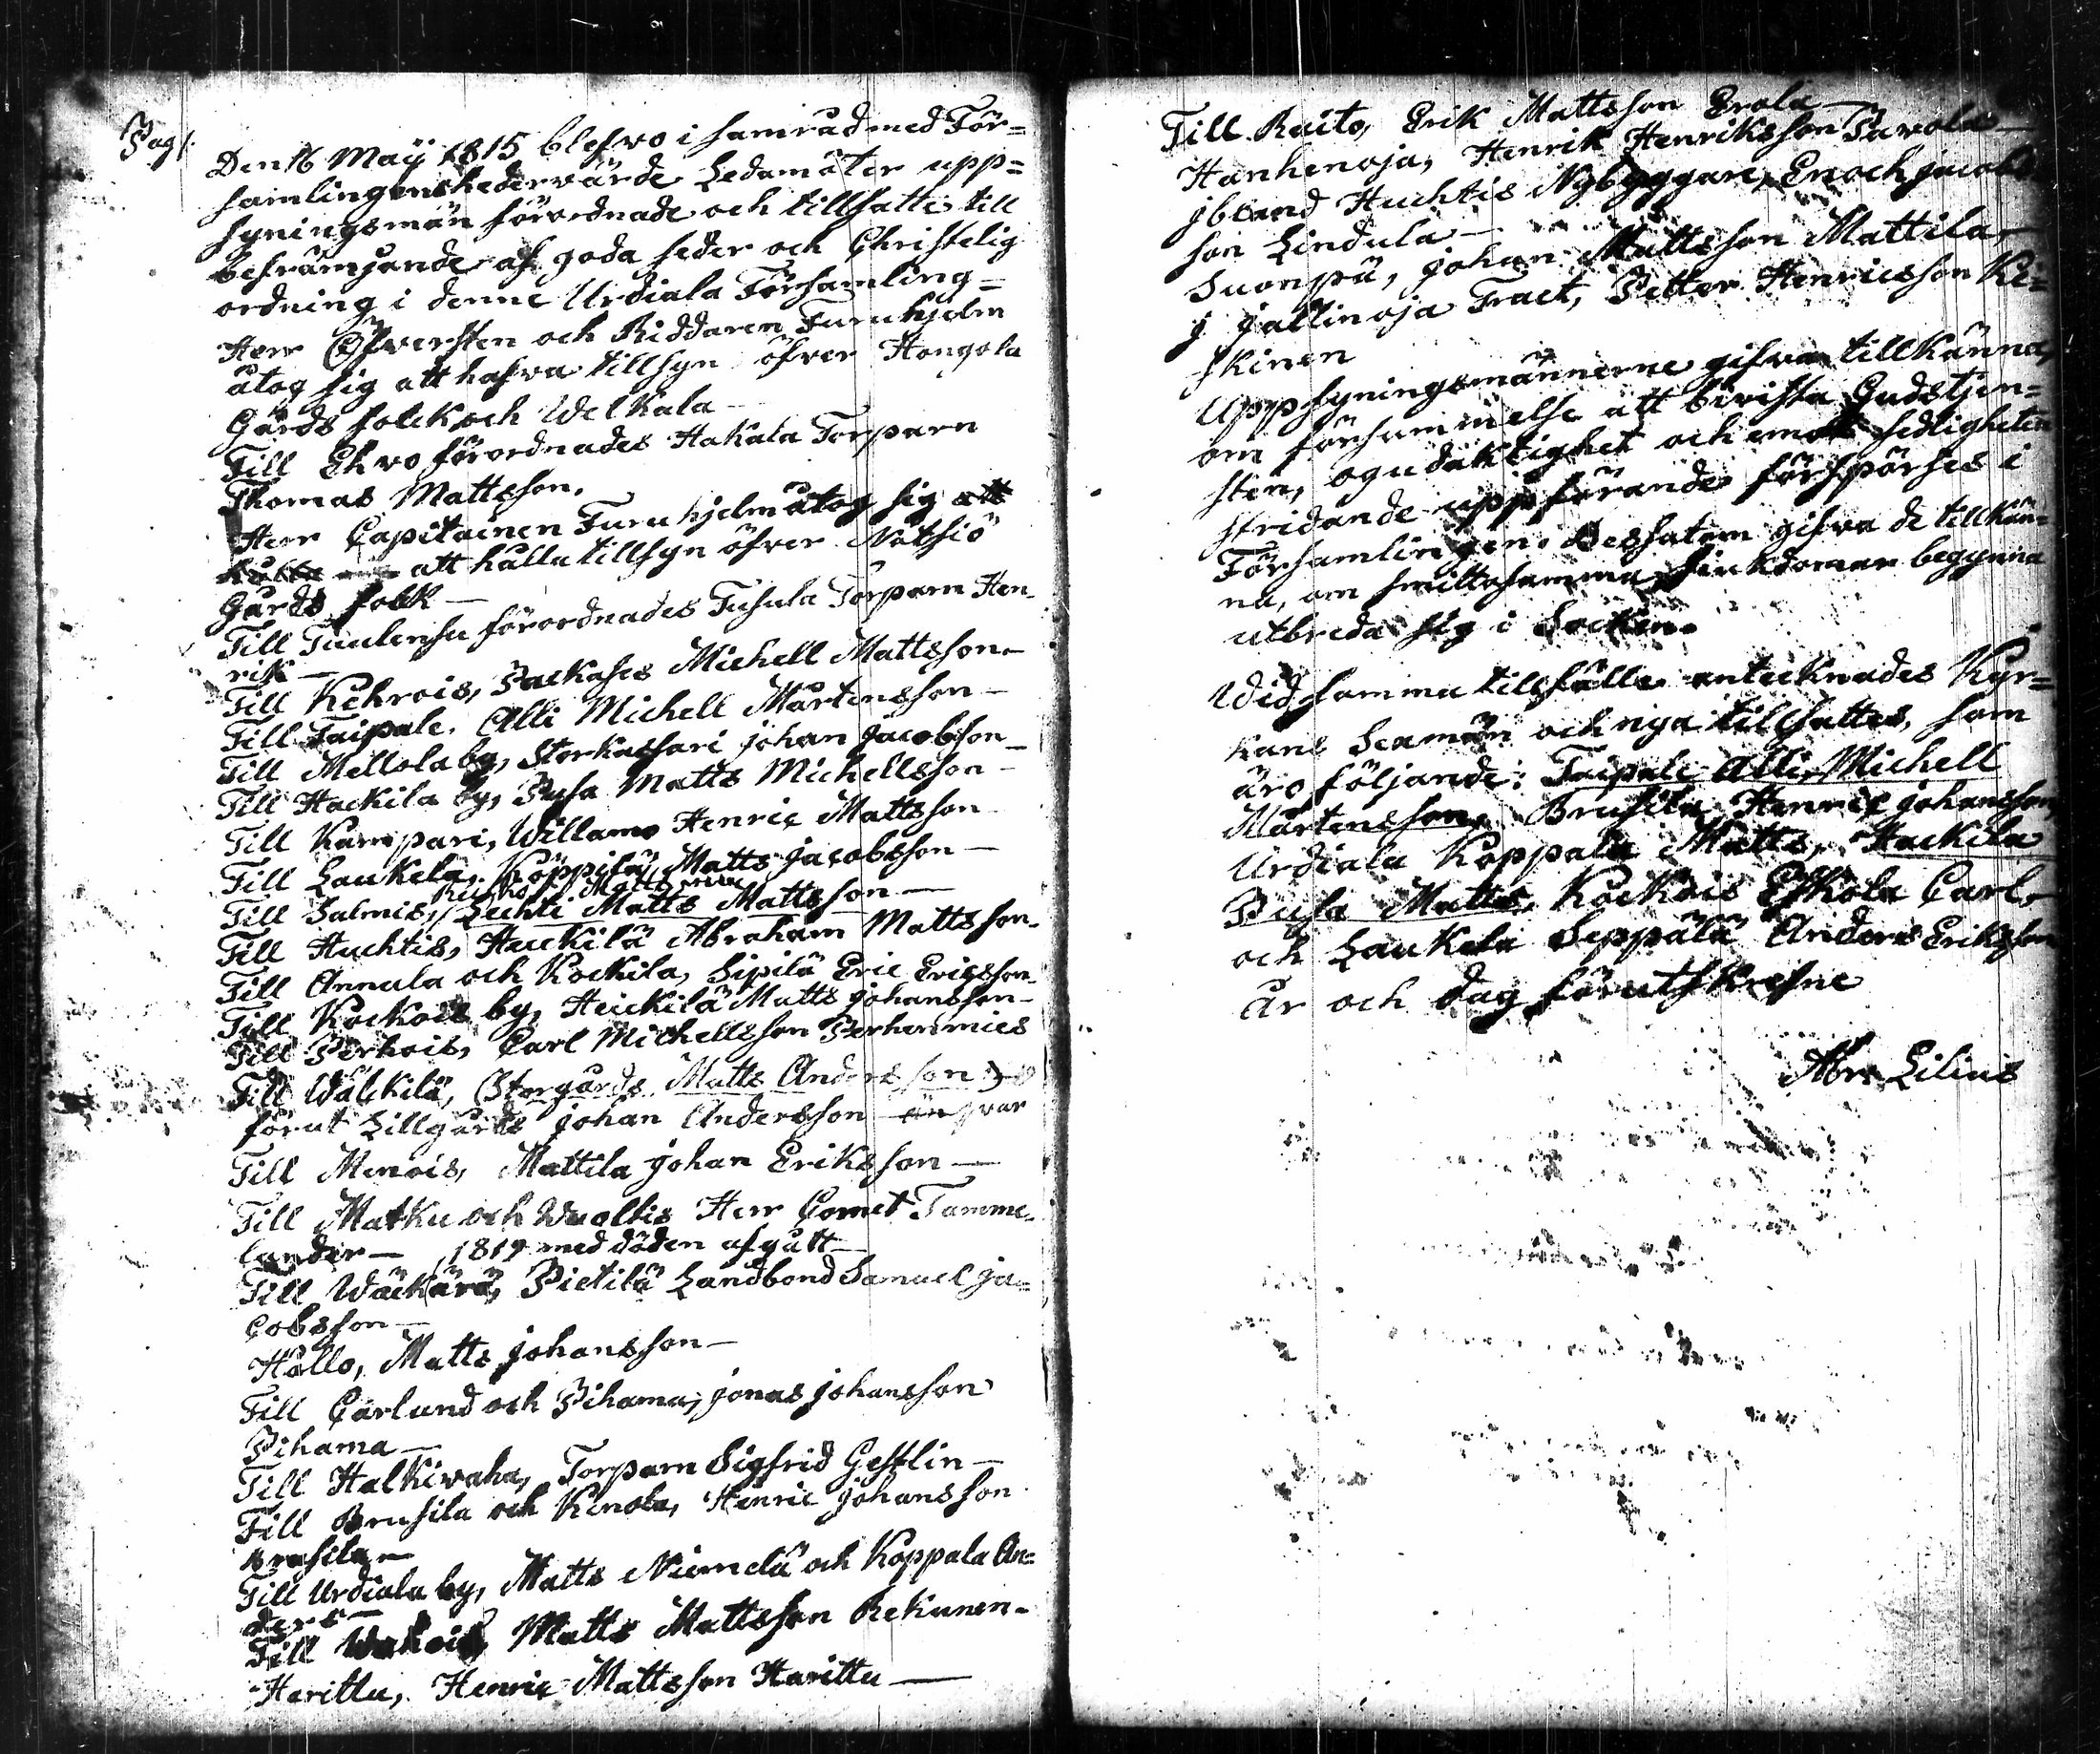 Pag 1.
Den 16 Maij 1815 blefvo i samråd med För=
samlingens hedervärde Ledamöter upp=
syningsmän förordnade och tillsatte till
befrämjande af goda seder och Christelig
ordning i denne Urdiala Församling=
Herr Öfversten och Riddaren Furuhjelm
åtog sig att hafva tillsyn öfver Hongola
Gårds folck och Welkala —
Till Ehro förordnades Hakala Torparn
Thomas Mattsson.
Herr Capitainen Furuhjelm åtog sig att
att hålla tillsyn öfver Nutsiö
Gårds folk —
Till Tuulensu förordnades Tusula Torparn Hen-
rik —
Till Kehrois, Packases Michell Mattsson —
Till Taipale, Alli Michell Mårtensson —
Till Mellola by, Storkassari Johan Jacobsson —
Till Hackila by, Pusa Matts Michellsson —
Till Kampari, Willamo Henric Mattsson
Till Laukela,Köppilä Matts Jacobsson —
Till Salmis, Lechti Matts Mattsson —
Till Huchtis, Heickilä Abraham Mattsson-
Till Annula och Kockila, Sipilä Eric Ericsson-
Till Kockois by, Heickilä Matts Johansson-
Till Perhois, Carl Michellsson Perhenmies
Till Wälckilä, (Storgårds Matts Andersson)
förut Lillgårds Johan Andersson
Till Menois, Mattila Johan Eriksson —
Till Matku och Wualtis Herr Cornet Tamme-
lander — 1819 med döden afgått —
Till Wäckärä, Pietilä Landbond Samuel Ja=
cobsson —
Hallo, Matts Johansson —
Till Carlund och Pihama, Jonas Johansson
Pihama —
Till Halkivaha, Torparn Sigfrid Gestlin —
Till Brusila och Kenola, Henric Johansson
Brusila —
Till Urdiala by, Matts Niemelä och Koppala An=
ders —
Till Wakois, Matts Mattsson Rekunen-
Harittu, Henric Mattsson Harittu —
Till Raito, Erik Mattsson Erola —
Hanhenoja, Henrik Henriksson Pavola —
Jbland Huchtis Nybyggare, Enoch Jacobs-
son Lindula —
Suonpä, Johan Mattsson Mattila —
J Jallinoja Tract, Petter Henricsson Ke=
skinen
Uppsyningsmännerne gifva tillkänna,
om försummelse att bevista Gudstjen=
sten, ogudaktighet och emot sedligheten
stridande uppförande förspörjes i
Församlingen. Dessutom gifva de tillkän=
na, om smittosamma sjukdomar begynna
utbreda sig i Socken.
Wid samma tillfälle antecknades Kyr=
kans Sexmän och nya tillsattes, som
äro följande: Taipale Alli Michell
Mårtensson, Brusila Henric Johansson,
Urdiala Koppala Matts, Hackila
Pusa Matts, Kockois Eskola Carl,
och Laukela Seppälä Anders Eriksson
År och dag förutskrefne
Abr. Lilius